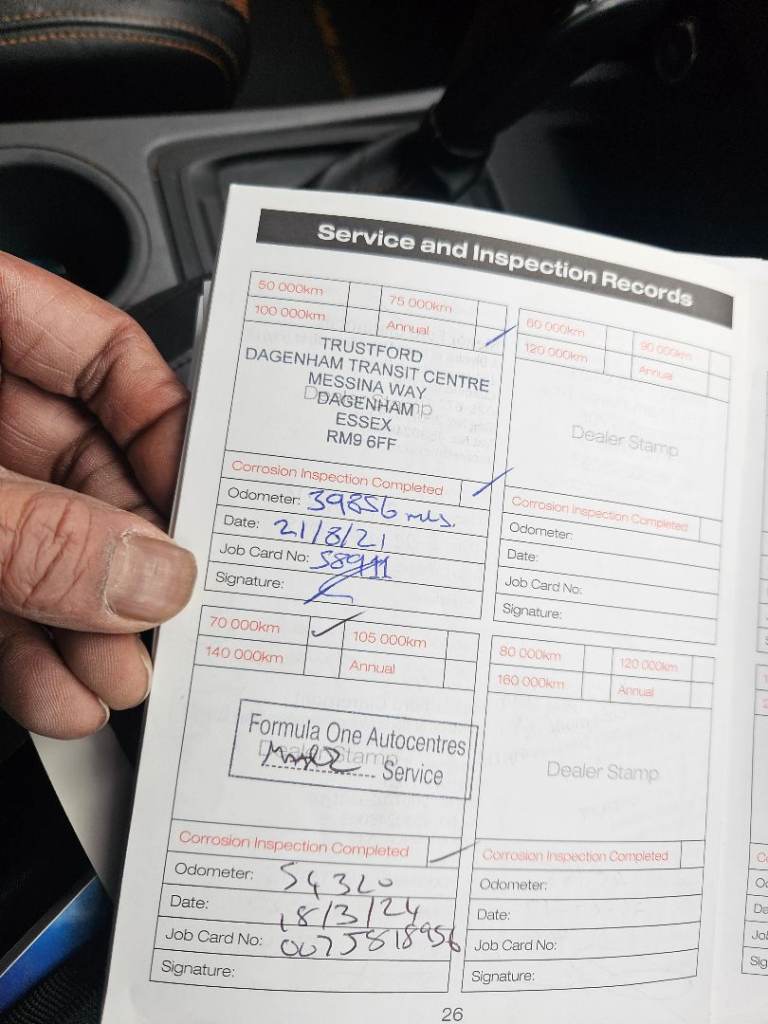 Service and Inspection Records
50 000km 75 000km
100 000km Annual
TRUSTFORD
DAGENHAM TRANSIT CENTRE
MESSINA WAY
DAGENHAM
ESSEX
RM9 6FF
Dealer Stamp
Corrosion Inspection Completed
Odometer: 39856 mls.
Date: 21/8/21
Job Card No: 58911
Signature:
60 000km 90 000km
120 000km Annual
Dealer Stamp
Corrosion Inspection Completed
Odometer:
Date:
Job Card No:
Signature:
70 000km 105 000km
140 000km Annual
Formula One Autocentres
Dealer Stamp
Service
Corrosion Inspection Completed
Odometer: 54320
Date: 18/3/24
Job Card No: 0075818956
Signature:
80 000km 120 000km
160 000km Annual
Dealer Stamp
Corrosion Inspection Completed
Odometer:
Date:
Job Card No:
Signature:
26